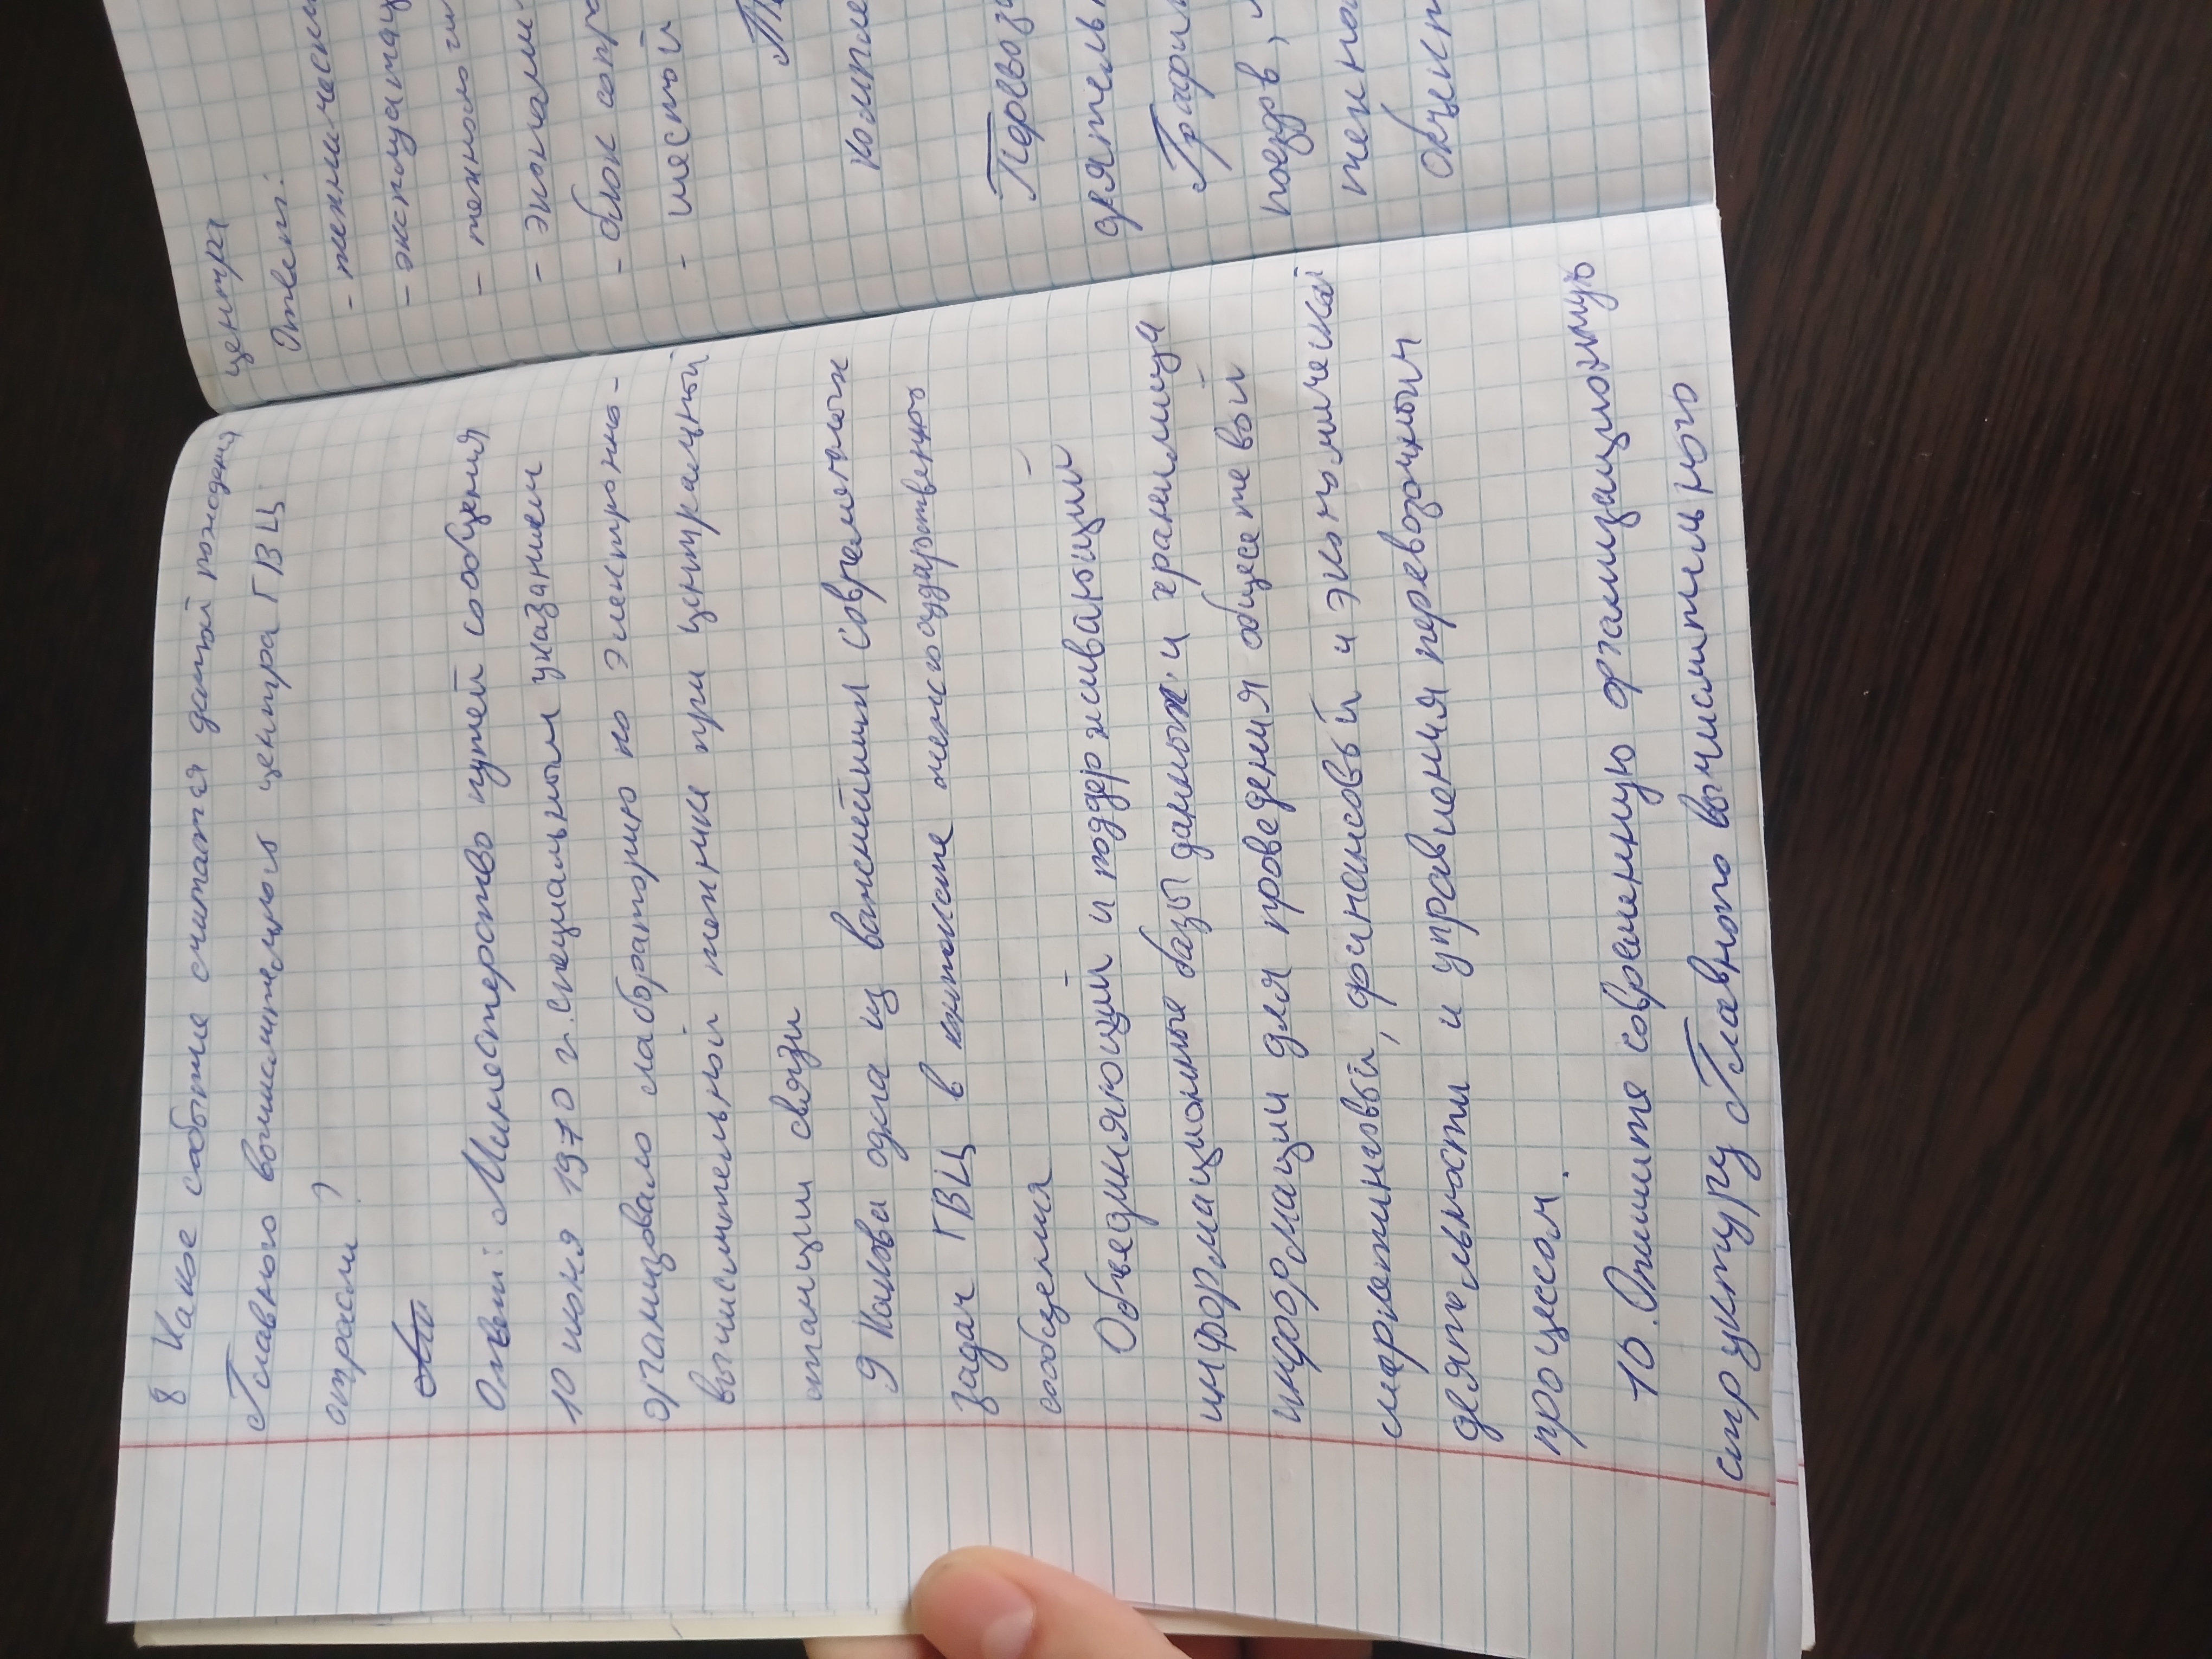 8 Какое событие считается датой рождения
Главного вычислительного центра ГВЦ
отрасли?
Ответ: Министерство путей сообщения
10 июня 1970 г. специальным указанием
организовало лабораторию по электронно-
вычислительной технике при центральной
станции связи
9 Какова одна из важнейших современных
задач ГВЦ в контексте
сообщения
Объединяющий и поддерживающий
информационные базы данных и хранилища
информации для проведения общесетевой
маркетинговый, финансовый и экономической
деятельности и управления перевозочным
процессом.
10. Опишите современную организационную
структуру Главного вычислительного
центра
Ответ:
- технически
- эксплуатац
- технологи
- экономи
- блок сопро
- шестой
компле
Перевоз
деятель
График
поездов,